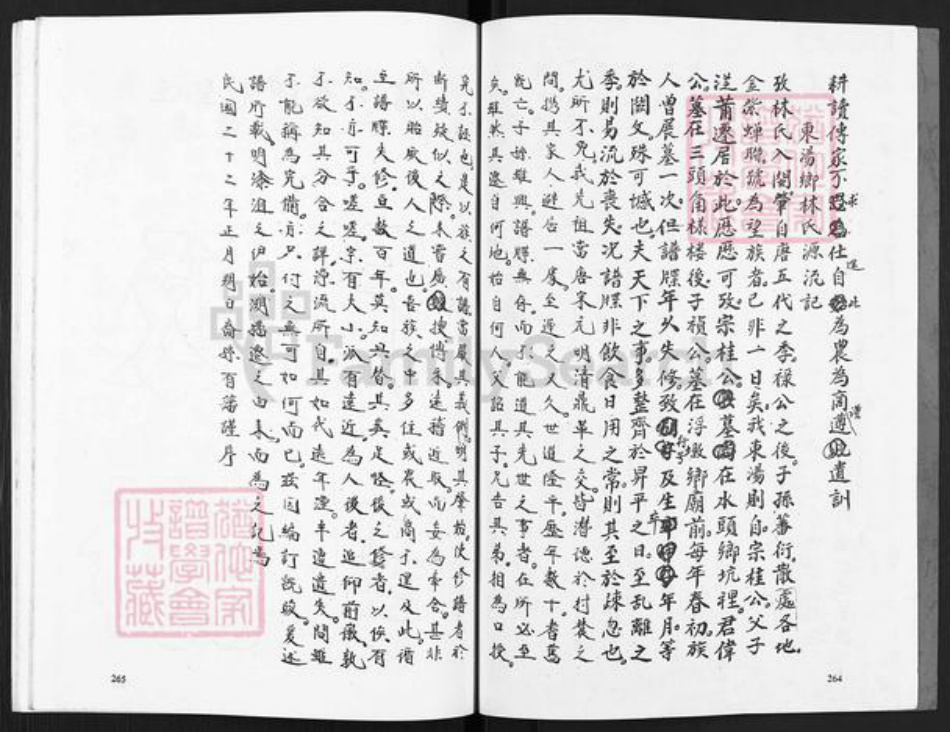 耕讀傳家不求為仕自此為農為商遵遺訓
東湯鄉林氏源流記
攷林氏入閩肇自唐五代之季祿公之後子孫蕃衍散處各地
金紫蟬聯號為望族者已非一日矣我東湯則自宗桂公父子
從莆遷居於此歷歷可攷宗桂公墓在水頭鄉坑裡君偉
公墓在三頭角樣樓後子禎公墓在浮墩鄉廟前每年春初族
人曾展墓一次但譜牒年久失修致行字及生卒年月等
於闕文殊可憾也夫天下之事多整齊於昇平之日至亂離之
季則易流於喪失況譜牒非飲食日用之常則其至於疎忽也
尤所不免我先祖當唐宋元明清鼎革之交皆潛德於村農之
間携其家人避居一處至遲之又久世道隆平歷年數十者舊
既亡子姓雖興譜牒無存而不能道其先世之事者在所必至
矣雖然其遷自何地始自何人父詔其子兄告其弟相為口授
是不誤也是以族之有譜當嚴其義例明其肇始使修譜者於
斷續疑似之際未嘗廣搜博采遠稽近取而妄為牽合甚非
所以貽厥後人之道也吾族之中多仕或農或商不遑及此譜
至譜牒失修垂數百年莫知其咎其責足怪後之修者以俟有
知才者可乎嗟嗟宗有大小派有遠近為人後者追仰前徽孰
不欲知其分合之詳源流所自其如代遠年湮半遭遺失間雖
不能稱為完備項只付之無可如何而已茲因編訂既竣爰述
譜所載明漆沮之伊始溯播遷之由来而為之記焉
民國二十二年正月朔日裔孫百藩謹序
265
264
FamilySearch